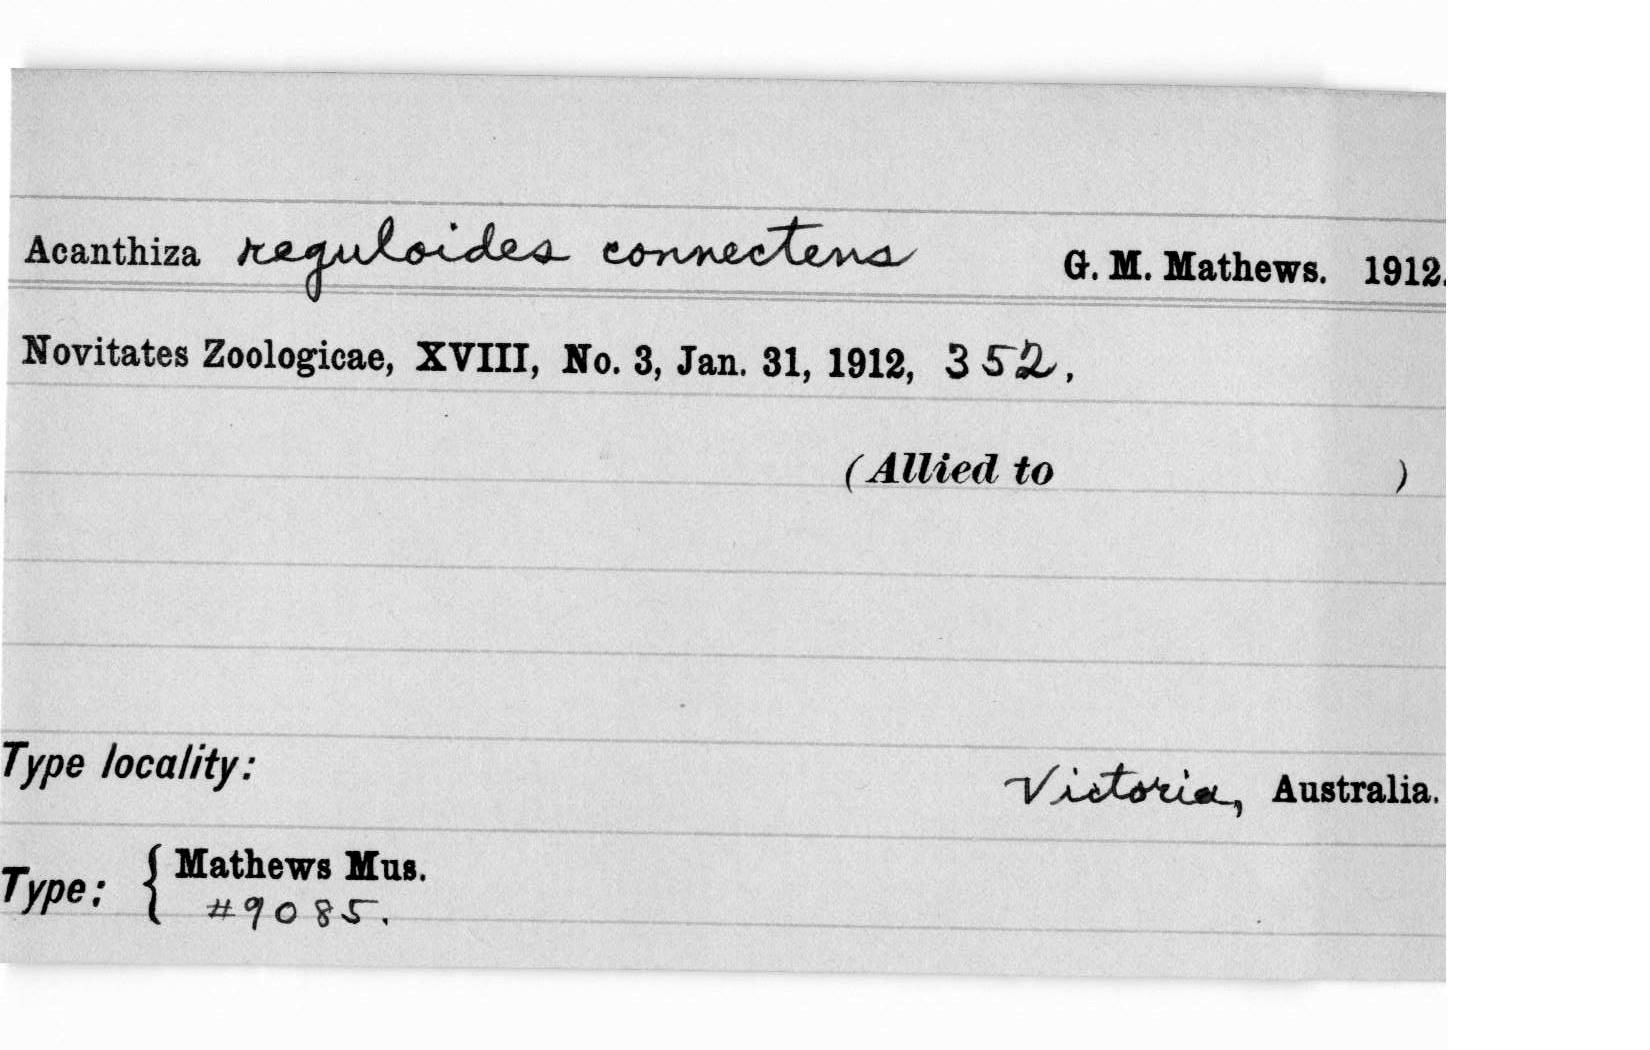 Acanthiza reguloides connectens G. M. Mathews. 1912.
Novitates Zoologicae, XVIII, No. 3, Jan. 31, 1912, 352,
(Allied to )
Type locality: Victoria, Australia.
Type: { Mathews Mus.
#9085.